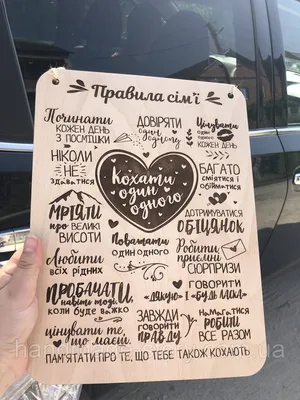 Правила сім'ї
Починати
КОЖЕН ДЕНЬ
З ПОСМІШКИ
ДОВІРЯТИ
один
одному
Цілувати
один одного
КОЖЕН ДЕНЬ
НІКОЛИ
НЕ
здаватися
Кохати
один
одного
БАГАТО
сміятися і
обійматися
МРІЯТИ
про ВЕЛИКІ
ВИСОТИ
ДОТРИМУВАТИСЯ
ОБІЦЯНОК
Поважати
один одного
Любити
всіх рідних
Робити
приємні
СЮРПРИЗИ
ПРОБАЧАТИ,
навіть тоді,
КОЛИ БУДЕ ВАЖКО
ГОВОРИТИ
«ДЯКУЮ» І «БУДЬ ЛАСКА»
цінувати те,
що маєш.
ЗАВЖДИ
ГОВОРИТИ
ПРАВДУ
НАМАГАТИСЯ
РОБИТИ
ВСЕ РАЗОМ
ПАМ'ЯТАТИ ПРО ТЕ, ЩО ТЕБЕ ТАКОЖ КОХАЮТЬ